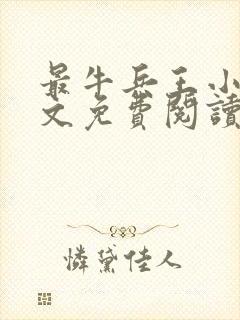 最牛兵王小
文免費閱讀
憐黛佳人